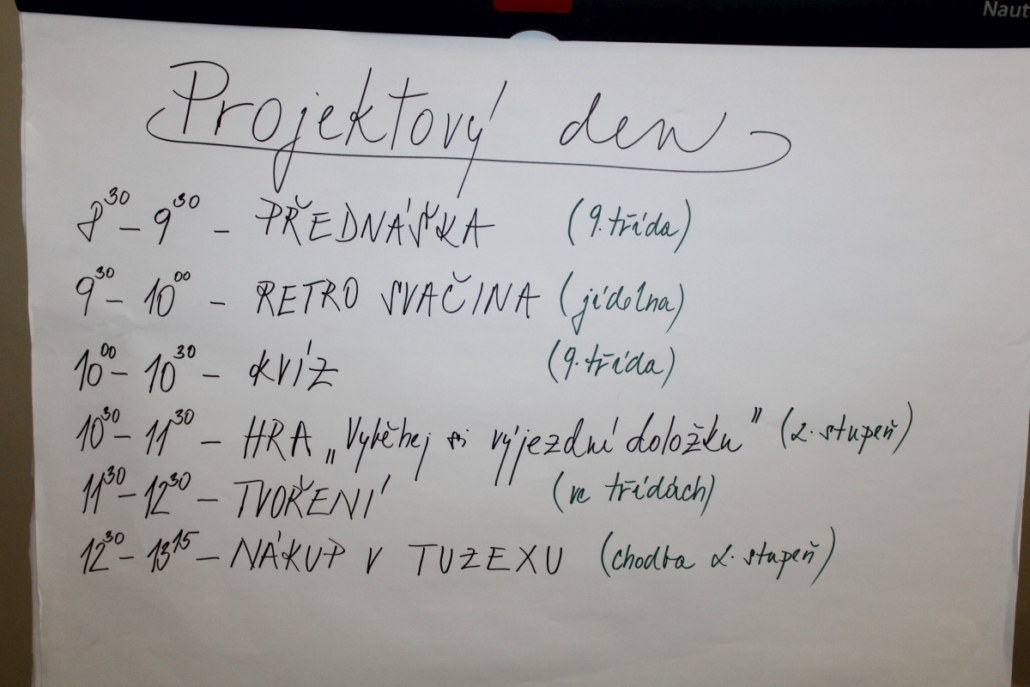 Naut
Projektový den
8³⁰ – 9³⁰ – PŘEDNÁŠKA (9. třída)
9³⁰ – 10⁰⁰ – RETRO SVAČINA (jídelna)
10⁰⁰ – 10³⁰ – KVÍZ (9. třída)
10³⁰ – 11³⁰ – HRA „Vyběhej si výjezdní doložku" (2. stupeň)
11³⁰ – 12³⁰ – TVOŘENÍ (ve třídách)
12³⁰ – 13¹⁵ – NÁKUP V TUZEXU (chodba 2. stupeň)